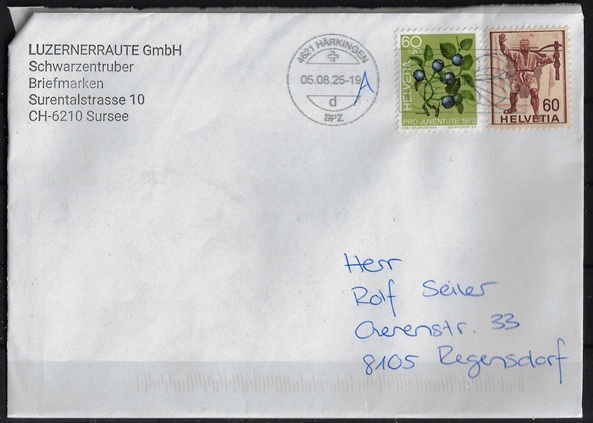 LUZERNERRAUTE GmbH
Schwarzentruber
Briefmarken
Surentalstrasse 10
CH-6210 Sursee
4621 HÄRKINGEN
05.08.25-19
d
BPZ
A
60
HELVETIA
PRO JUVENTUTE 1973
60
HELVETIA
Herr
Rolf Seiler
33
8105 Regensdorf